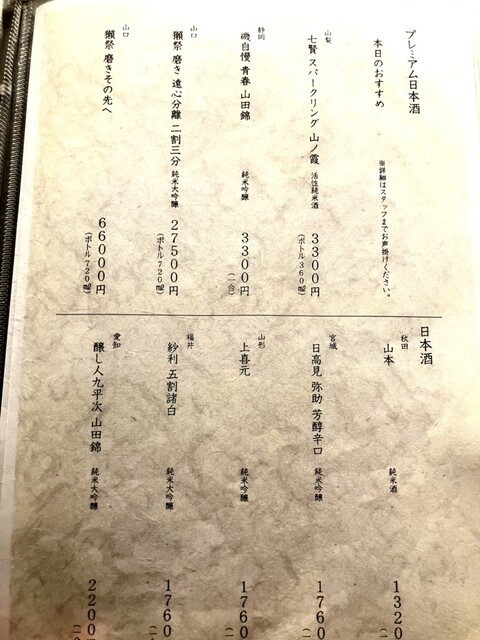 プレミアム日本酒
本日のおすすめ
※詳細はスタッフまでお声掛けください。
山梨
七賢 スパークリング 山ノ霞 活性純米酒 3300円
(ボトル360㎖)
静岡
磯自慢 青春 山田錦 純米吟醸 3300円
(二合)
山口
獺祭 磨き 遠心分離 二割三分 純米大吟醸 27500円
(ボトル720㎖)
山口
獺祭 磨きその先へ 66000円
(ボトル720㎖)
日本酒
秋田
山本 純米酒 1320
宮城
日高見 弥助 芳醇辛口 純米吟醸 1760
山形
上喜元 純米吟醸 1760
福井
紗利 五割諸白 純米大吟醸 1760
愛知
醸し人九平次 山田錦 純米大吟醸 2200